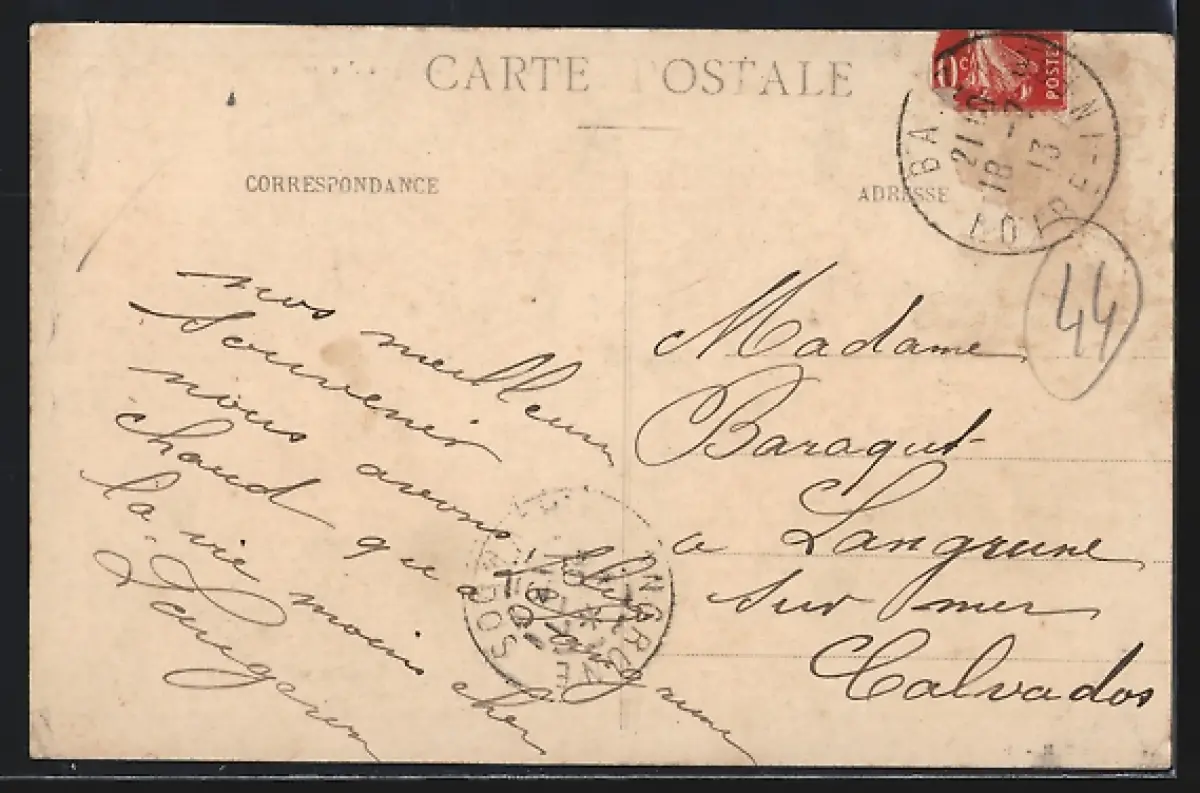 CARTE POSTALE
CORRESPONDANCE
ADRESSE
10c
POSTES
21 40
18 - 7
13
LOIRE-IN
44
nos meilleurs
souvenirs
nous avons plus
chaud qu'a Langrune
la vie moins cher
Madame
Baraqut
a Langrune
sur mer
Calvados